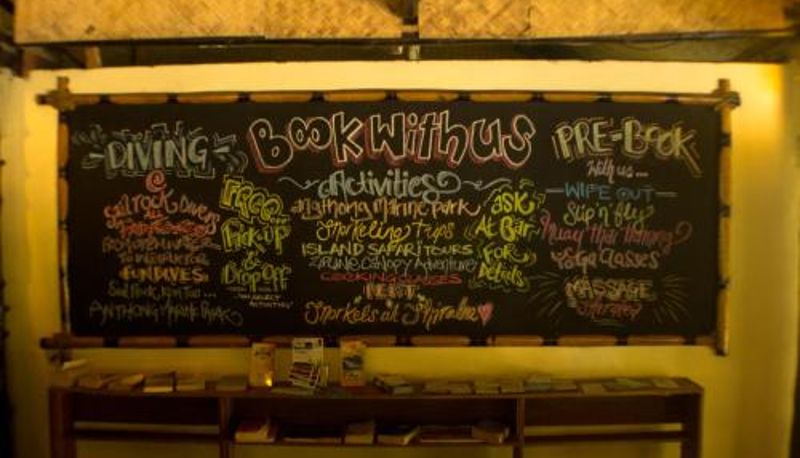 DIVING
@
Sail rock Divers
BEGINNER
TO INSTRUCTOR
FUN DIVES
Sail Rock, Koh Tao ...
ANTHONG MARINE PARK
FREE
Pick up
&
Drop off
Book With us
Activities
angthong Marine park
Snorkeling Trips
ISLAND SAFARI TOURS
Canopy Adventure
COOKING CLASSES
RENT
Snorkels at Shiralea
ask
At Bar
FOR
Details
PRE-BOOK
With us...
WIPE OUT
Slip n fly
Muay thai
Yoga Classes
MASSAGE